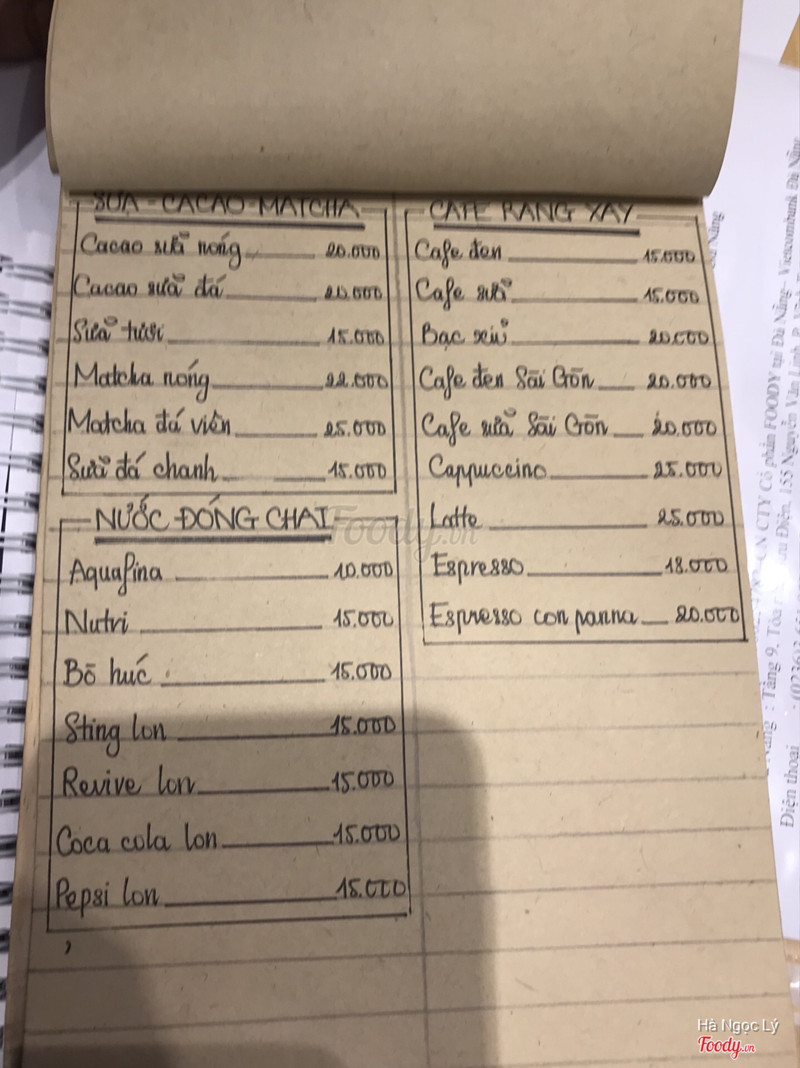 SỮA - CACAO - MATCHA
Cacao sữa nóng 20.000
Cacao sữa đá 20.000
Sữa tươi 15.000
Matcha nóng 22.000
Matcha đá viên 25.000
Sữa đá chanh 15.000
NƯỚC ĐÓNG CHAI
Aquafina 10.000
Nutri 15.000
Bò húc 15.000
Sting lon 15.000
Revive lon 15.000
Coca cola lon 15.000
Pepsi lon 15.000
CAFE RANG XAY
Cafe đen 15.000
Cafe sữa 15.000
Bạc xỉu 20.000
Cafe đen Sài Gòn 20.000
Cafe sữa Sài Gòn 20.000
Cappuccino 25.000
Latte 25.000
Espresso 18.000
Espresso con panna 20.000
Foody.vn
Điện thoại
Hà Ngọc Lý
Foody.vn